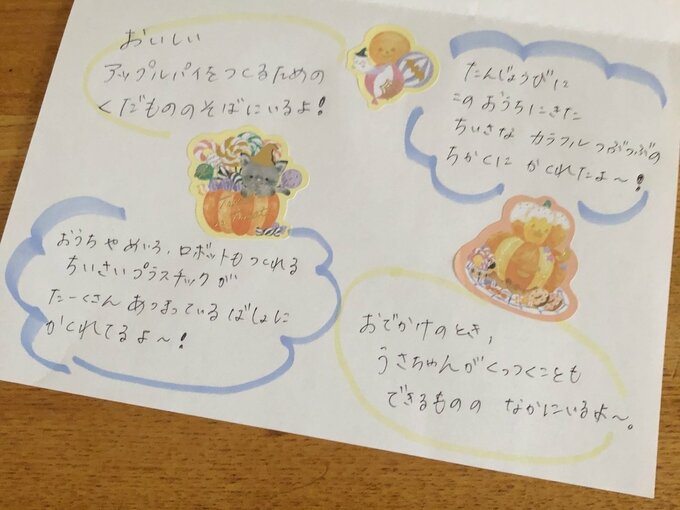 おいしい
アップルパイをつくるための
くだもののそばにいるよ!
たんじょうびに
このおうちにきた
ちいさな カラフルつぶつぶの
ちかくに かくれたよ〜!
おうちやめいろ、ロボットもつくれる
ちいさいプラスチックが
たーくさん あつまっているばしょに
かくれてるよ〜!
おでかけのとき、
うさちゃんがくっつくことも
できるものの なかにいるよ〜。